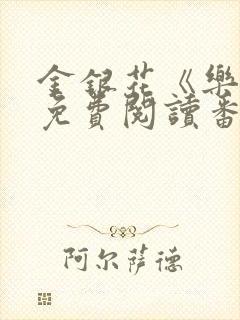 金銀花《樂
免費閱讀番
阿尔萨德